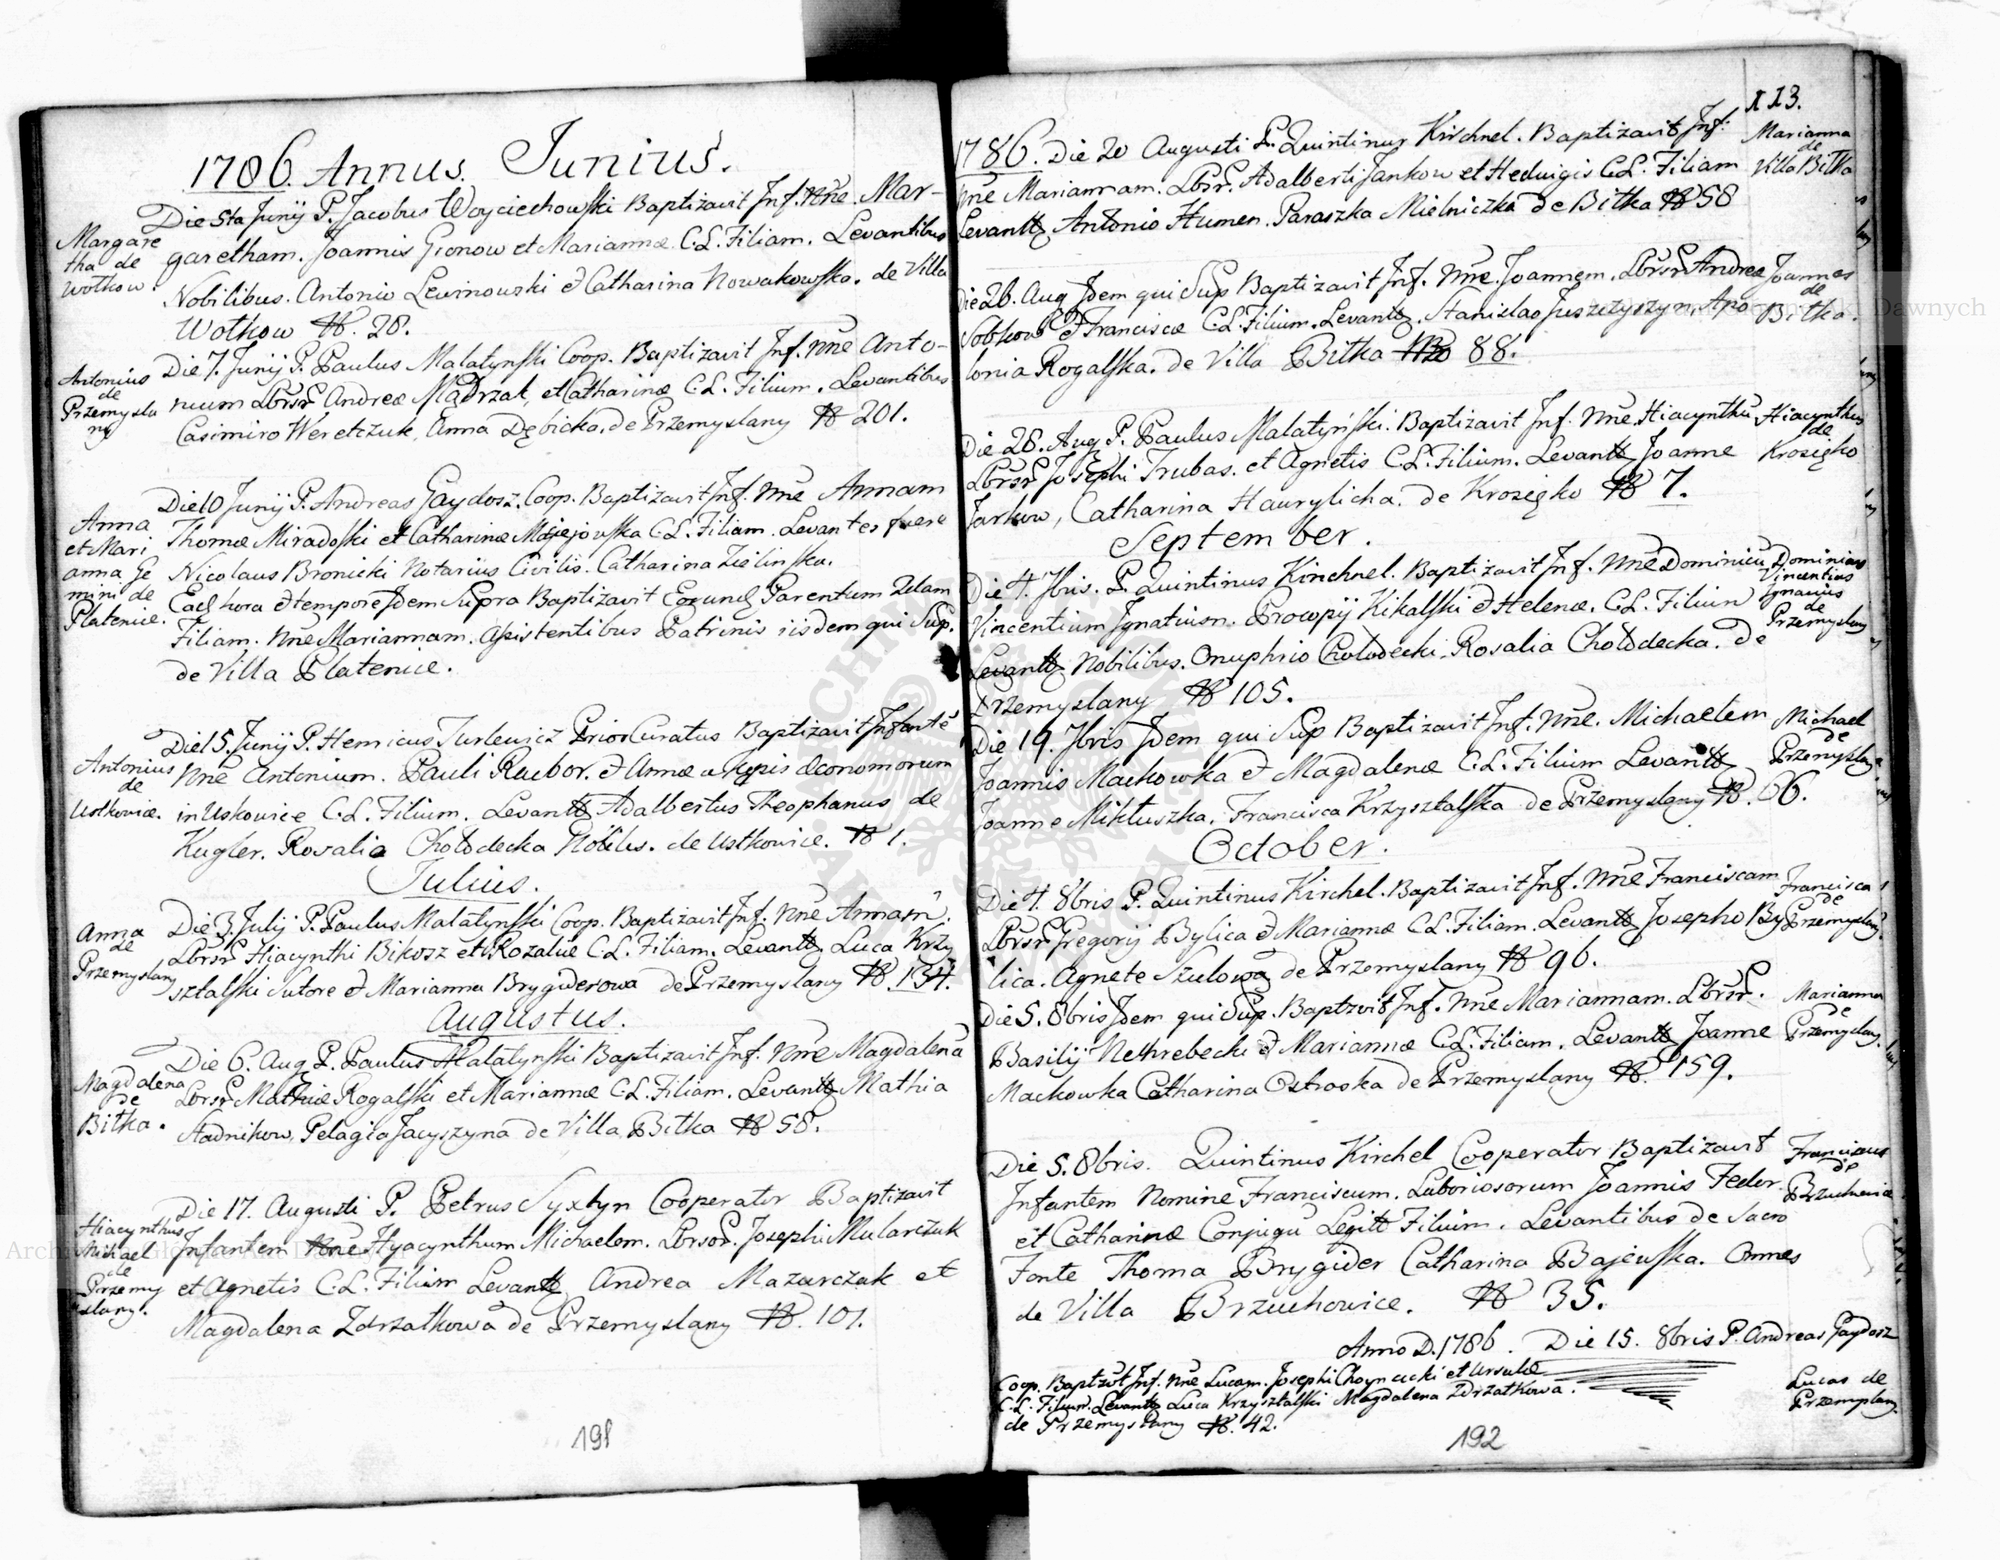 1786. Annus. Junius.
Die 5ta Junij P. Jacobus Woyciechowski Baptizavit Inf. Nne Mar-
Margare
tha de
Wołkow
garetham. Joannis Gronow et Mariannæ C.L. Filiam. Levantibus
Nobilibus. Antonio Lewinowski & Catharina Nowakowska. de Villa
Wołkow N. 28.
Antonius
de
Przemysla
ny
Die 7. Junij P. Paulus Malatynski Coop. Baptizavit Inf. Nne Anto-
nium Lbrsr Andreæ Mądrzak, et Catharinæ C.L. Filium. Levantibus
Casimiro Weretczuk, Anna Dębicka, de Przemyslany N 201.
Anna
et Mari
anna Ge
mini de
Platenice.
Die 10 Junij P. Andreas Gaydosz. Coop. Baptizavit Inf. Nne Annam
Thomæ Miradoski et Catharinæ C.L. Filiam. Levantes fuere
Nicolaus Bronicki Notarius Civilis. Catharina Zielinska.
Eadl hora & tempore Idem Supra Baptizavit Eorund Parentum 2dam
Filiam. Nne Mariannam. Assistentibus Patrinis iisdem qui Sup.
de Villa Platenice.
Antonius
de
Ustkowice.
Die 15. Junij P. Henricus Turlewicz Prior Curatus Baptizavit Infantē
Nne Antonium. Pauli Raebor. & Annæ œconomorum
in Uskowice C.L. Filium. Levantb Adalbertus Theophanus de
Kugler. Rosalia Chołodecka Nobiles. de Ustkowice. N 1.
Julius.
Anna
de
Przemyslany
Die 3. Julij P. Paulus Malatynski Coop. Baptizavit Inf. Nne Annam.
Lbrsr Hiacynthi Bikosz et Rozaliæ C.L. Filiam. Levantb Luca Krzy
sztalski Sutore & Marianna Brygiderowa de Przemyslany N. 134.
Augustus.
Magdalena
de
Bitka.
Die 6. Aug P. Paulus Malatynski Baptizavit Inf. Nne Magdalena
Lbrsr Mathiæ Rogalski et Mariannæ C.L. Filiam. Levantb Mathia
Stadnikow, Pelagia Jacyszyna de Villa Bitka N 58.
Hiacynthus
Michael
de
Przemy
slany.
Die 17. Augusti P. Petrus Syxtyn Cooperator Baptizavit
Infantem Nne Hyacynthum Michaelem. Lbrsor. Josephi Mularczuk
et Agnetis C.L. Filium Levantb Andrea Mazurczak et
Magdalena Zdrzatkowa de Przemyslany N. 101.
191
113.
1786. Die 20 Augusti P. Quintinus Kirchnel. Baptizavit Inf:
Nne Mariannam. Lbrsr. Adalberti Jankow et Hedwigis C.L. Filiam
Levantb Antonio Humen. Paraszka Mielniczka de Bitka N 58
Marianna
de
Villa Bitka
Die 26. Aug Idem qui Sup Baptizavit Inf. Nne. Joannem. Lbrsr Andreæ
Sobkow & Franciscæ C.L. Filium. Levantb. Stanislao Juszczyszyn. Apo
lonia Rogalska. de Villa Bitka No 88.
Joannes
de
Bitka.
Die 28. Aug P. Paulus Malatyński. Baptizavit Inf. Nne. Hiacynthū
Lbrsr Josephi Trubas. et Agnetis C.L. Filium. Levantb Joanne
Jarkow, Catharina Hawrylicha. de Krosięko N 7.
Hiacynthus
de
Krosięko
September.
Die 4. 7bris. P. Quintinus Kirchnel. Baptizavit Inf. Nne Dominicū
Vincentium Ignatium. Procopij Kikalski & Helenæ. C.L. Filium
Levantb Nobilibus. Onuphrio Chołodecki. Rosalia Chołodecka. De
Przemyslany N 105.
Dominicus
Vincentius
Ignatius
de
Przemyslany
Die 19. 7bris Idem qui Sup Baptizavit Inf. Nne. Michaelem
Joannis Mackowka & Magdalenæ C.L. Filium Levantb
Joanne Miktuszka. Francisca Krzysztalska de Przemyslany N. 66.
Michael
de
Przemyslany
October.
Die 4. 8bris P. Quintinus Kirchel. Baptizavit Inf. Nne Franciscam
Lbrsr. Gregorij Bylica & Mariannæ C.L. Filiam. Levantb Josepho By
lica. Agnete Szulowa de Przemyslany N 96.
Francisca
de
Przemyslany.
Die 5. 8bris Idem qui Sup. Baptzvit Inf. Nne Mariannam. Lbrsr.
Basilij Nethrebecki & Mariannæ C.L. Filiam. Levantb Joanne
Mackowka Catharina Ostroska de Przemyslany N. 159.
Marianna
de
Przemyslany.
Die 5. 8bris. Quintinus Kirchel Cooperator Baptizavit
Infantem Nomine Franciscum. Laboriosorum Joannis Feder.
et Catharinæ Conjugū Legitt Filium. Levantibus de Sacro
Fonte Thoma Brygider Catharina Bajewska. Omnes
de Villa Brzuchowice. N 35.
Franciscus
de
Brzuchowice
Anno D. 1786. Die 15. 8bris P. Andreas Gaydosz
Coop. Baptzvt Inf. Nne Lucam. Josephi Choynacki et Ursulæ
C.L. Filium. Levantb Luca Krzysztalski Magdalena Zdrzatkowa.
de Przemyslany N. 42.
Lucas de
Przemyslany.
192